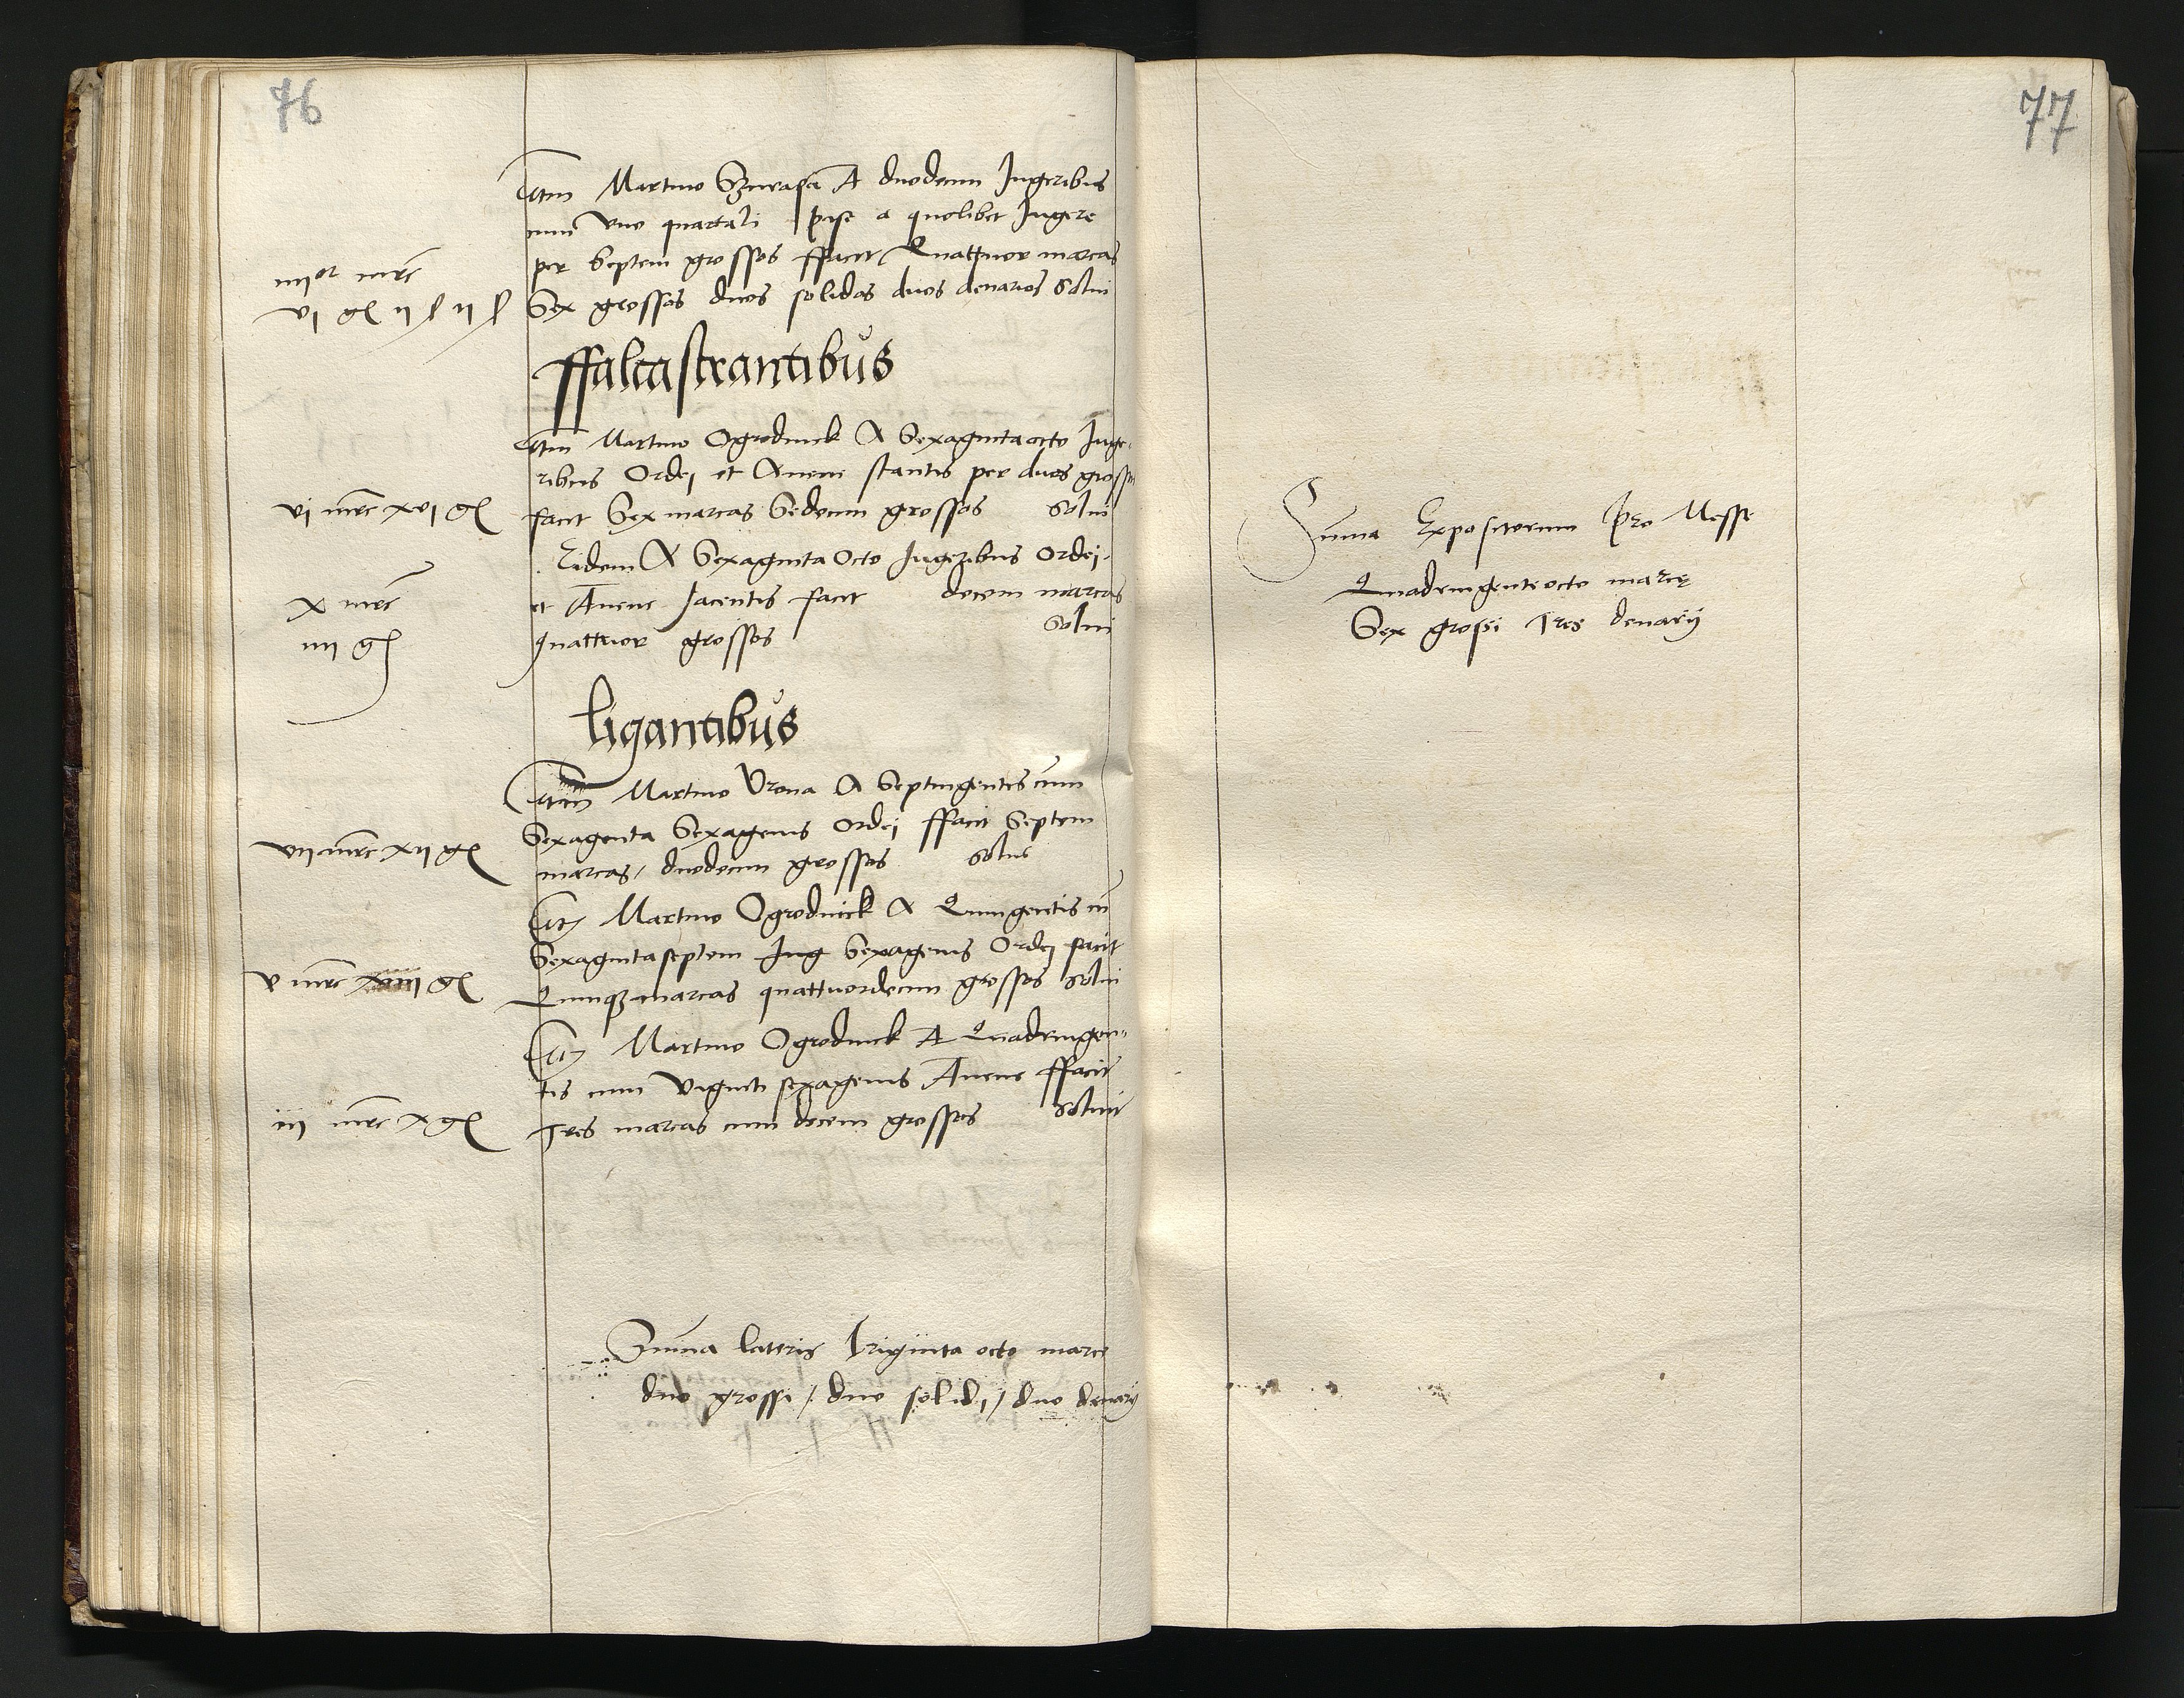 76
Itm Martino Szurasa A duodecim Jugeribus
cum Uno quartali pise a quolibet Jugere
per Septem grossos ffacit Quattuor marcas
iiiior mrc
Sex grossos duos solidos duos denarios Solui
vi gs ii s ii d
ffalcastrantibus
Itm Martino Ogrodnick A Sexaginta octo Juge-
ribus Ordej et Auene stantis per duos grossos
facit Sex marcas Sedecim grossos Solui
vi mrc xvi gs
Eidem A Sexaginta Octo Jugeribus Ordej
et Auene Jacentis facit decem marcas
x mrc
quattuor grossos Solui
iiii gs
ligantibus
Itm Martino Vrona A Septingentis cum
Sexaginta Sexagenis Ordej ffacit Septem
marcas / duodecim grossos Solui
vii mrc xii gs
Itm Martino Ogrodnick A Quingentis cum
Sexaginta septem Jug Sexagenis Ordej facit
Quinque marcas quattuordecim grossos Solui
v mrc xiiii gs
Itm Martino Ogrodnick A Quadringen-
tis cum viginti sexagenis Auene ffacit
Tres marcas cum decem grossos Solui
iii mrc x gs
Summa lateris Triginta octo marce
duo grossi / duo solidj / duo denarij
77
Summa Expositorum Pro Messe
Quadringente octo marcę
Sex grossi Tres denarij